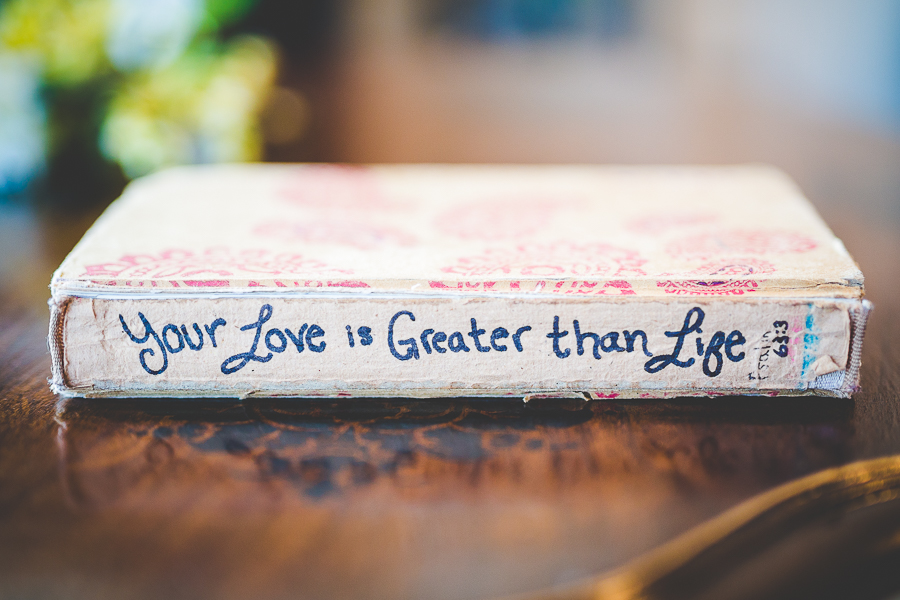 Your Love is Greater than Life
Psalm
63:3